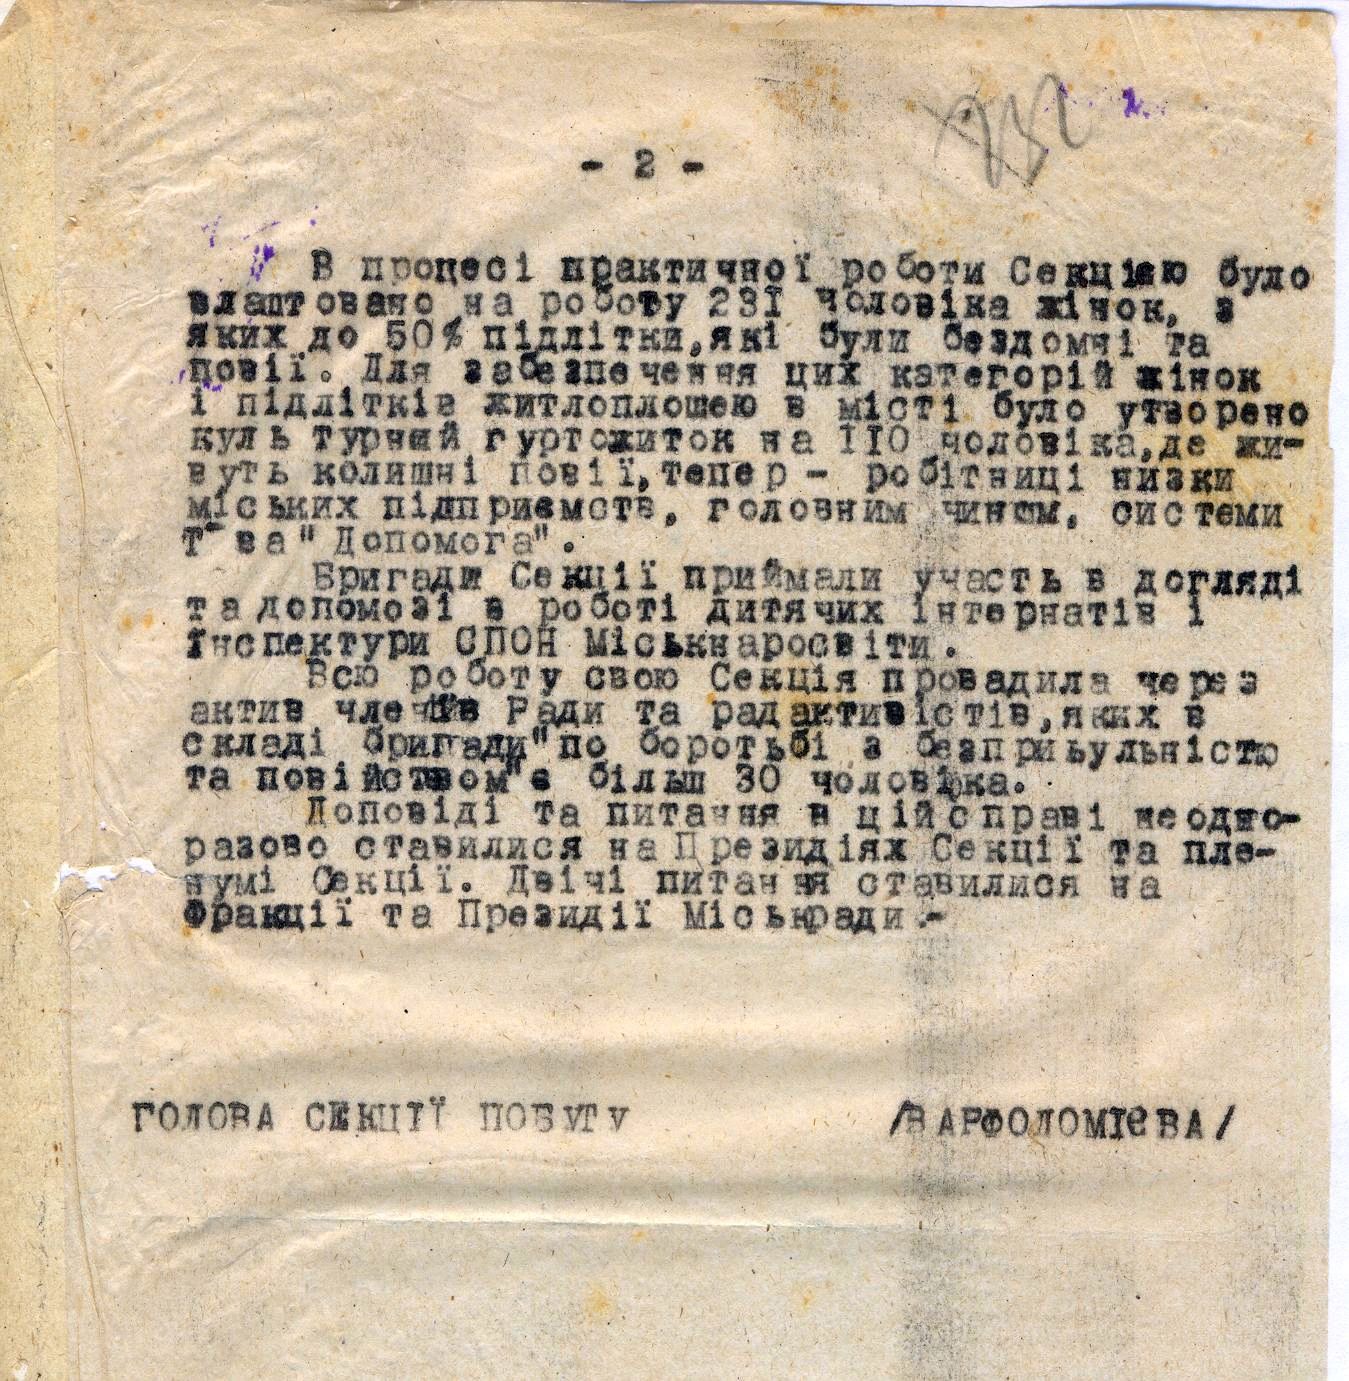 - 2 -
В процесі практичної роботи Секцією було
влаштовано на роботу 231 чоловіка жінок, з
яких до 50% підлітки,які були бездомні та
повії. Для забезпечення цих категорій жінок
і підлітків житлоплошею в місті було утворено
культурний гуртожиток на 110 чоловіка,де жи-
вуть колишні повії,тепер - робітниці низки
міських підприємств, головним чином, системи
Т-ва "Допомога".
Бригади Секції приймали участь в догляді
та допомозі в роботі дитячих інтернатів і
Інспектури СПОН Міськнаросвіти.
Всю роботу свою Секція провадила через
актив членів Ради та радактивістів,яких в
складі бригади "по боротьбі з безпритульністю
та повійством" є більш 30 чоловіка.
Доповіді та питання в цій справі неодно-
разово ставилися на Президіях Секції та пле-
нумі Секції. Двічі питання ставилися на
Фракції та Президії Міськради.-
ГОЛОВА СЕКЦІЇ ПОБУТУ /ВАРФОЛОМІЄВА/